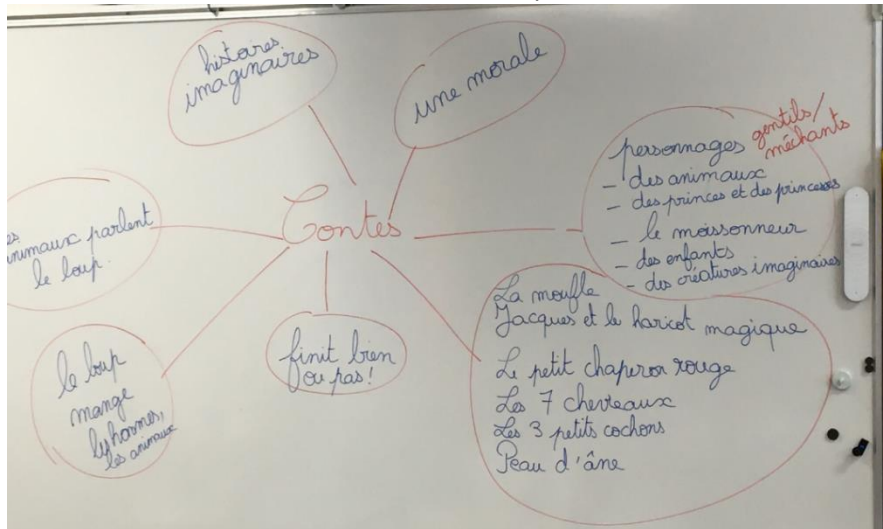 histoires
imaginaires
une morale
gentils/
méchants
personnages
- des animaux
- des princes et des princesses
- le moissonneur
- des enfants
- des créatures imaginaires
Contes
animaux parlent
le loup.
le loup
mange
les animaux
finit bien
ou pas!
La moufle
Jacques et le haricot magique
Le petit chaperon rouge
Les 7 chevreaux
Les 3 petits cochons
Peau d'âne